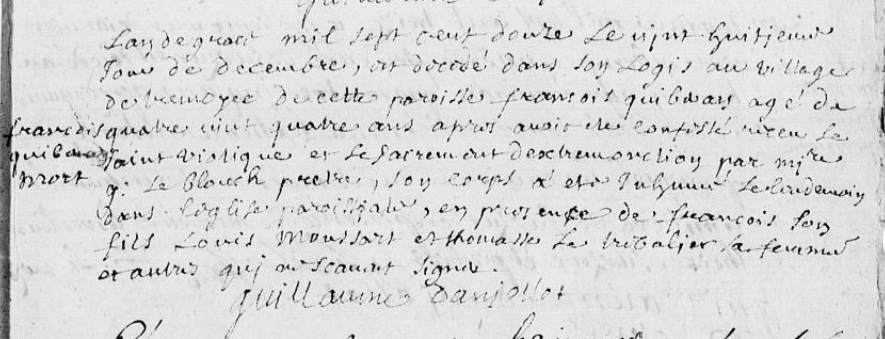 L'an de grace mil sept cent douze le vint huitjeme
jour de decembre, est decedé dans son logis au village
de de cette paroisse francois quiban agé de
francois quatre vint quatre ans apres avoir ete confessé receu le
saint viatique et le sacrement d'extremonction par mire
mort
g. le blouch pretre, son corps a eté Inhumé le lendemain
dans l'eglise paroissiale, en presence de francois son
fils Louis Moussart et thomasse le tribalier sa femme
et autres qui ne scavent signer.
guillaume danjollot